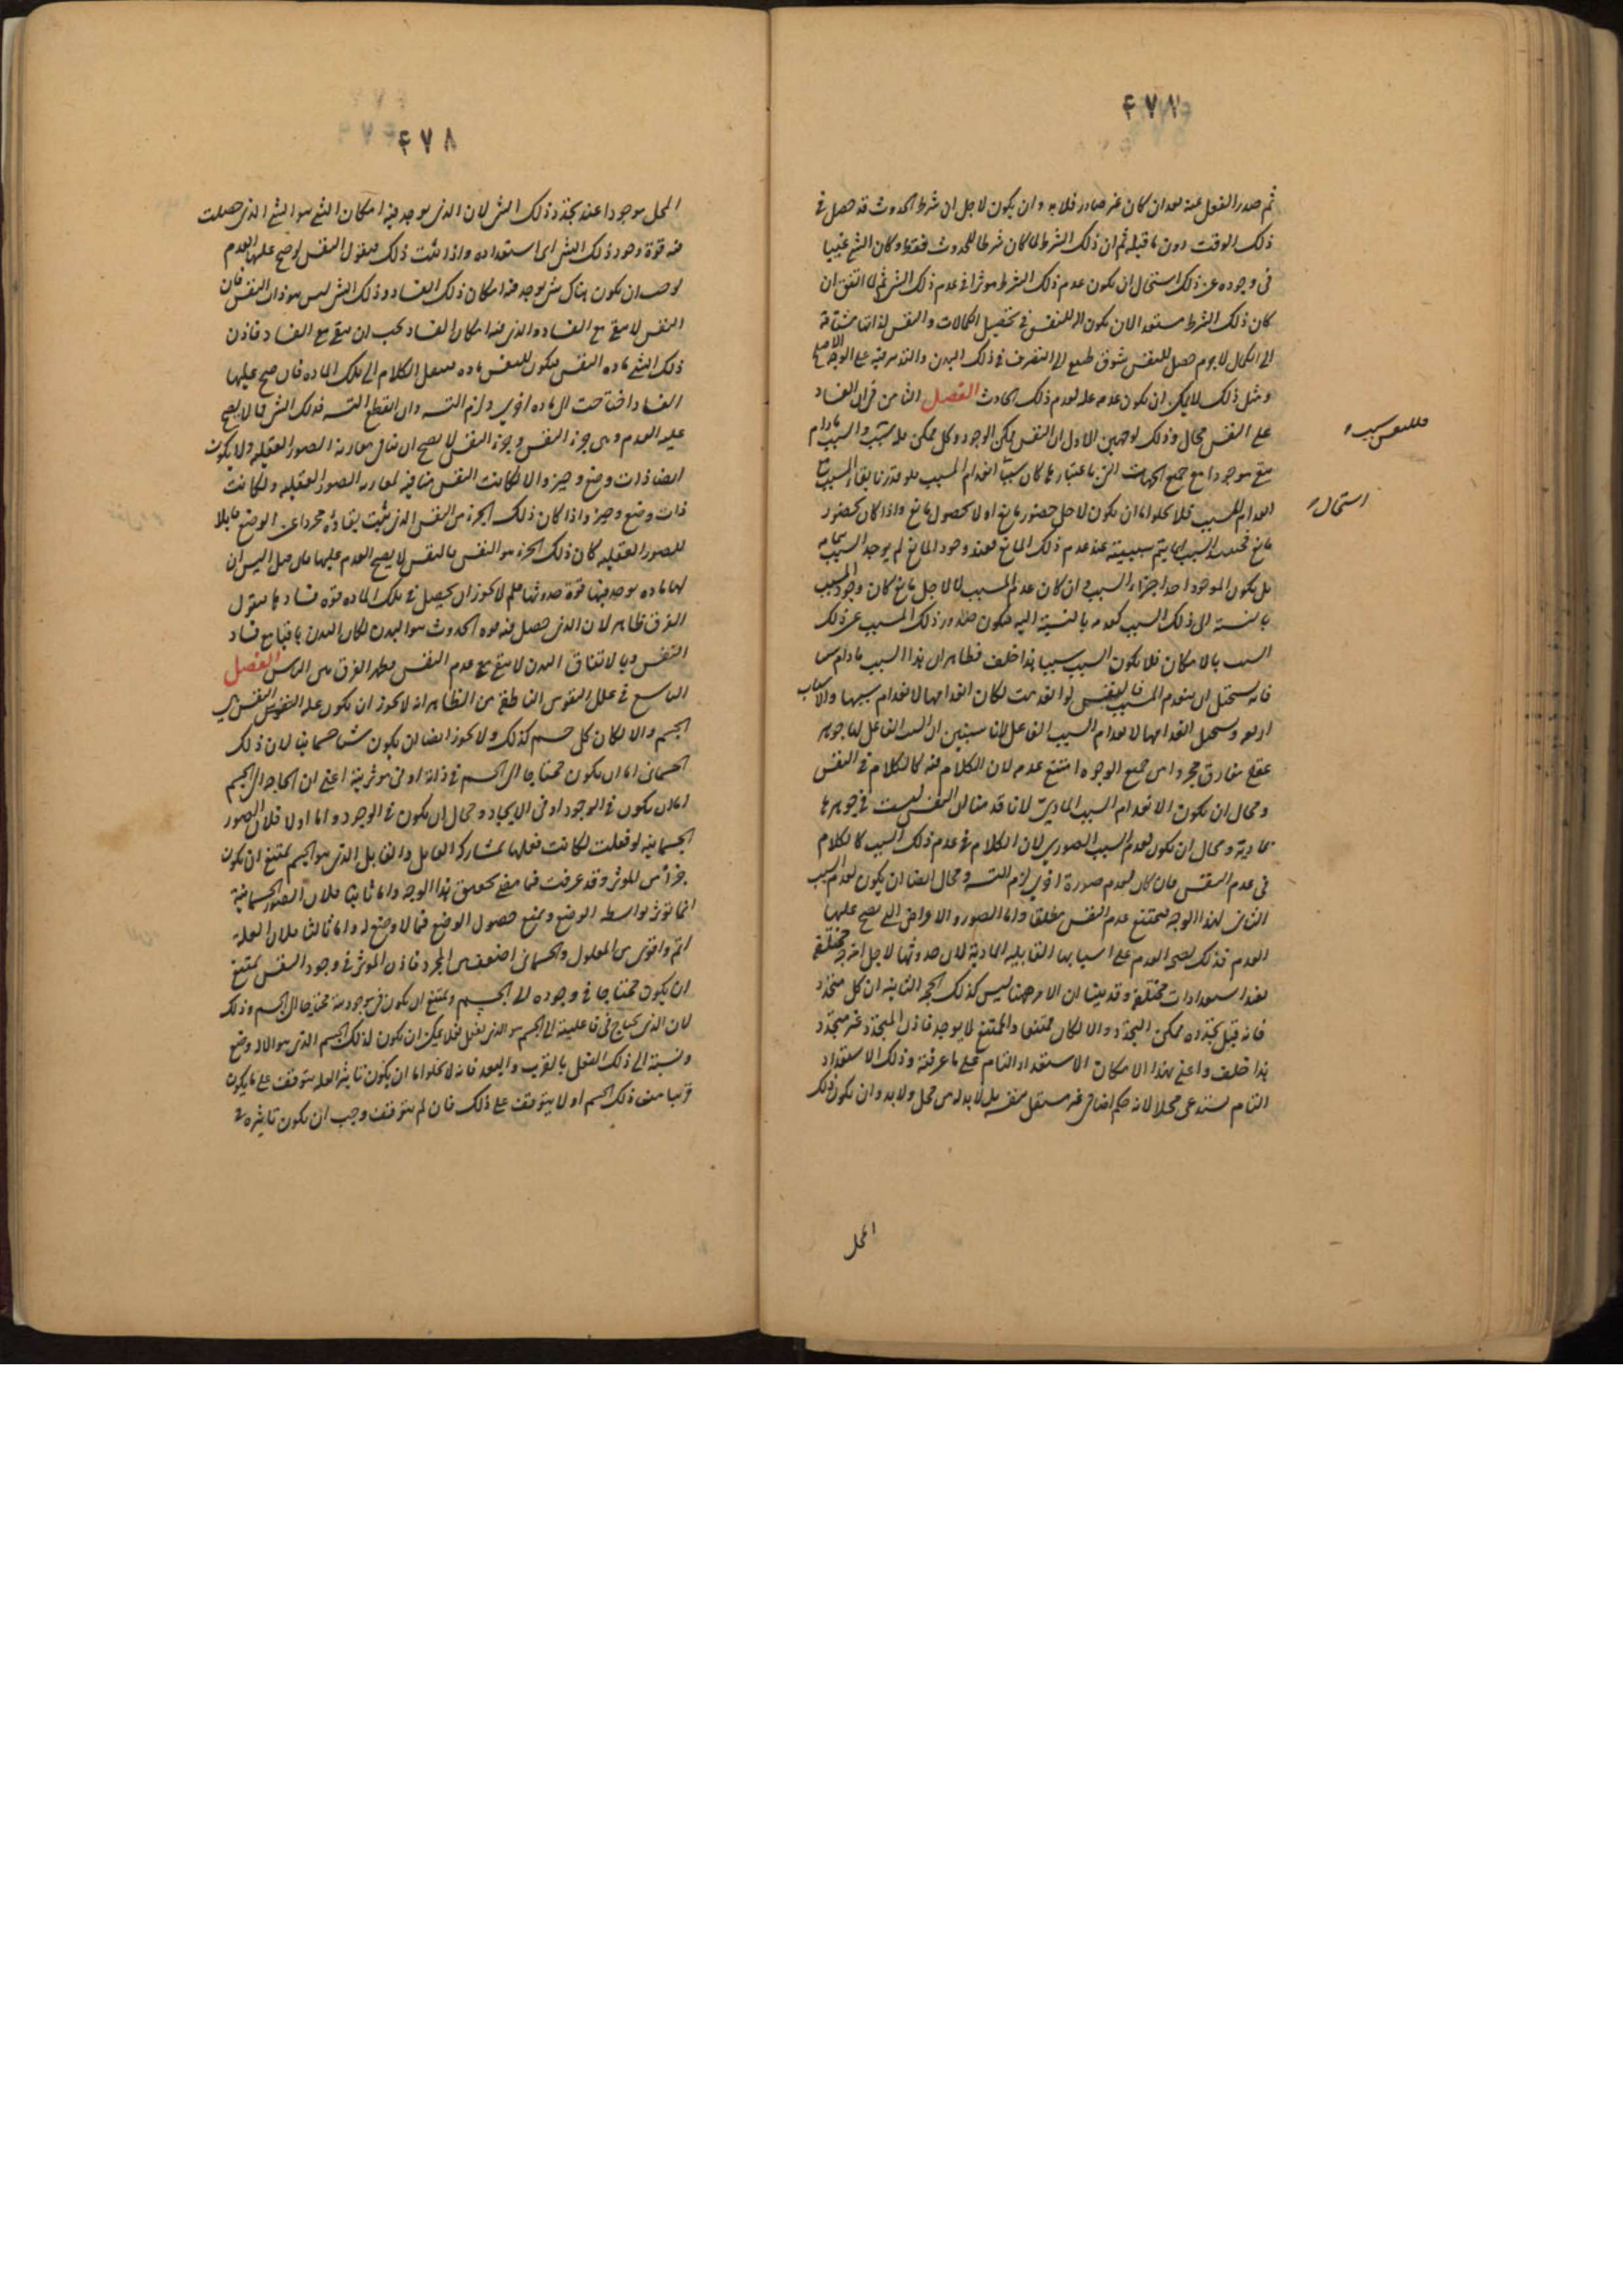 ٤٧٧
ثم صدر الفعل عنه بعد ان كان غير صادر فلا بد وان يكون لاجل ان شرط الحدوث قد حصل فى
ذلك الوقت دون ما قبله ثم ان ذلك الشرط لما كان شرطا للحدوث فقط وكان الشئ غنيا
فى وجوده عن ذلك استحال ان يكون عدم ذلك الشرط موثرا فى عدم ذلك الشئ ثم لما اتفق ان
كان ذلك الشرط مستعدا لان يكون الة للنفس فى تحصيل الكمالات والنفس لذاتها مشتاقة
الى الكمال لا جرم حصل للنفس شوق طبيعى الى التصرف فى ذلك البدن والتدبير فيه على الوجه الاصلح
ومثل ذلك لا يمكن ان يكون عدمه علة لعدم ذلك الحادث الفصل الثامن فى ان الفساد
على النفس محال وذلك لوجهين الاول ان النفس ممكن الوجود وكل ممكن فله سبب والسبب مادام
يبقى موجودا مع جميع الجهات التى باعتبارها كان سببا انعدام المسبب فلو قدرنا بقاء السبب مع
انعدام المسبب فلا يخلو اما ان يكون لاجل حضور مانع او لا لحصول مانع واذا كان لحضور
مانع فحينئذ السبب انما يتم سببيته عند عدم ذلك المانع فعند وجود المانع لم يوجد السبب بتمامه
بل يكون الموجود احد اجزاء السبب وان كان عدم المسبب لا لاجل مانع كان وجود المسبب
بالنسبة الى ذلك السبب كعدمه بالنسبة اليه فيكون صدور ذلك المسبب عن ذلك
السبب بالامكان فلا يكون السبب سببا هذا خلف فظاهر ان هذا السبب مادام سببا
فانه يستحيل ان ينعدم المسبب فالنفس لو انعدمت لكان انعدامها لانعدام سببها والاسباب
اربعة ويستحيل انعدامها لانعدام السبب الفاعلى لانا سنبين ان السبب الفاعل لها جوهر
عقلى مفارق مجرد من جميع الوجوه امتنع عدمه لان الكلام فيه كالكلام فى النفس
ومحال ان يكون لانعدام السبب المادى لانا قد بينا ان النفس ليست فى جوهرها
بمادية ومحال ان يكون لعدم السبب الصورى لان الكلام فى عدم ذلك السبب كالكلام
فى عدم النفس فان كان لعدم صورة اخرى لزم التسه ومحال ايضا ان يكون لعدم السبب
الغائى لهذا الوجه فيمتنع عدم النفس مطلقا واما الصور والاعراض التى يصح عليها
العدم فذلك لصحة العدم على اسبابها القابلية المادية لان حدوثها لاجل امزجة مختلفة
تفيد استعدادات مختلفة وقد بينا ان الامر ههنا ليس كذلك الحجة الثانية ان كل متجدد
فانه قبل تجدده ممكن التجدد والا لكان ممتنعا والممتنع لا يوجد فاذن المتجدد غير متجدد
هذا خلف واعنى بهذا الامكان الاستعداد التام على ما عرفته وذلك الاستعداد
التام يستدعى محلا لانه حكم اضافى غير مستقل بنفسه بل لا بد له من محل ولا بد وان يكون ذلك
استحال
المحل
٤٧٨
المحل موجودا عند تجدد ذلك الشئ لان الذى يوجد فيه امكان الشئ هو الشئ الذى حصلت
فيه قوة وجود ذلك الشئ اى استعداده واذا ثبت ذلك فنقول النفس لو صح عليها العدم
لوجب ان يكون هناك شئ يوجد فيه امكان ذلك الفساد وذلك الشئ ليس هو ذات النفس فان
النفس لا تبقى مع الفساد والذى فيه امكان الفساد يجب ان يبقى مع الفساد فاذن
ذلك الشئ مادة النفس فيكون للنفس مادة فننقل الكلام الى تلك المادة فان صح عليها
الفساد احتاجت الى مادة اخرى ولزم التسه وان انقطع التسه فذلك الشئ مما لا يصح
عليه العدم وهى جزء النفس وجزء النفس لا يصح ان ينافى مقارنة الصور العقلية ولا يكون
ايضا ذات وضع وحيز والا لكانت النفس منافية لمقارنة الصور العقلية ولكانت
ذات وضع وحيز واذا كان ذلك الجزء من النفس الذى يثبت بقاؤه مجردا عن الوضع قابلا
للصور العقلية كان ذلك الجزء هو النفس فالنفس لا يصح العدم عليها فان قيل اليس ان
لها مادة يوجد فيها قوة حدوثها فلم لا يجوز ان يحصل فى تلك المادة قوة فسادها فنقول
الفرق ظاهر لان الذى حصل فيه قوة الحدوث هو البدن لكان البدن باقيا مع فساد
النفس وبالاتفاق البدن لا يبقى مع عدم النفس فظهر الفرق بين البابين الفصل
التاسع فى علل النفوس الناطقة من الظاهر انه لا يجوز ان يكون علة النفوس النفس هى
الجسم والا لكان كل جسم كذلك ولا يجوز ايضا ان يكون شيئا جسمانيا لان ذلك
الجسمانى اما ان يكون محتاجا الى الجسم فى ذاته او فى موثريته اعنى ان الحاجة الى الجسم
اما ان يكون فى الوجود او فى الايجاد ومحال ان يكون فى الوجود واما اولا فلان الصور
الجسمانية لو فعلت لكانت فعلها بمشاركة القابل والقابل الذى هو الجسم يمتنع ان يكون
جزءا من الموثر وقد عرفت فيما مضى تحقيق هذا الوجه واما ثانيا فلان الصور الجسمانية
انما تؤثر بواسطة الوضع ويمتنع حصول الوضع فيما لا وضع له واما ثالثا فلان العلة
اتم واقوى من المعلول والجسمانى اضعف من المجرد فاذن الموثر فى وجود النفس يمتنع
ان يكون محتاجا فى وجوده الى الجسم ويمتنع ان يكون فى موجوديته محتاجا الى الجسم وذلك
لان الذى يحتاج فى فاعليته الى الجسم هو الذى يفعل فعلا يمكن ان يكون لذلك الجسم الذى هو الالة وضع
ونسبة الى ذلك الفعل بالقرب والبعد فانه لا يخلو اما ان يكون تاثير العلة يتوقف على ما يكون
قريبا من ذلك الجسم او لا يتوقف على ذلك فان لم يتوقف وجب ان يكون تاثيره فى